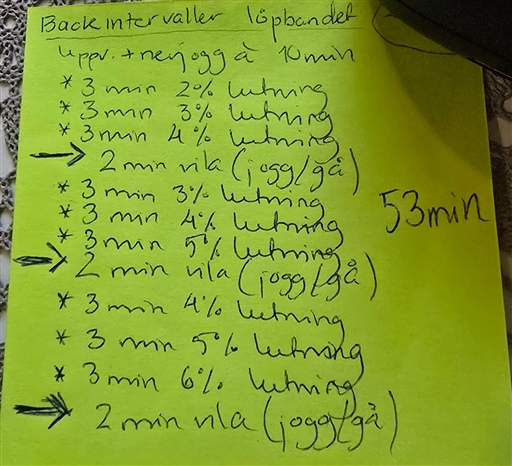 Backintervaller löpbandet
uppv. + nerjogg à 10min
* 3 min 2% lutning
* 3 min 3% lutning
* 3 min 4% lutning
→ 2 min vila (jogg/gå)
* 3 min 3% lutning
* 3 min 4% lutning
* 3 min 5% lutning
→ 2 min vila (jogg/gå)
* 3 min 4% lutning
* 3 min 5% lutning
* 3 min 6% lutning
→ 2 min vila (jogg/gå)
53min